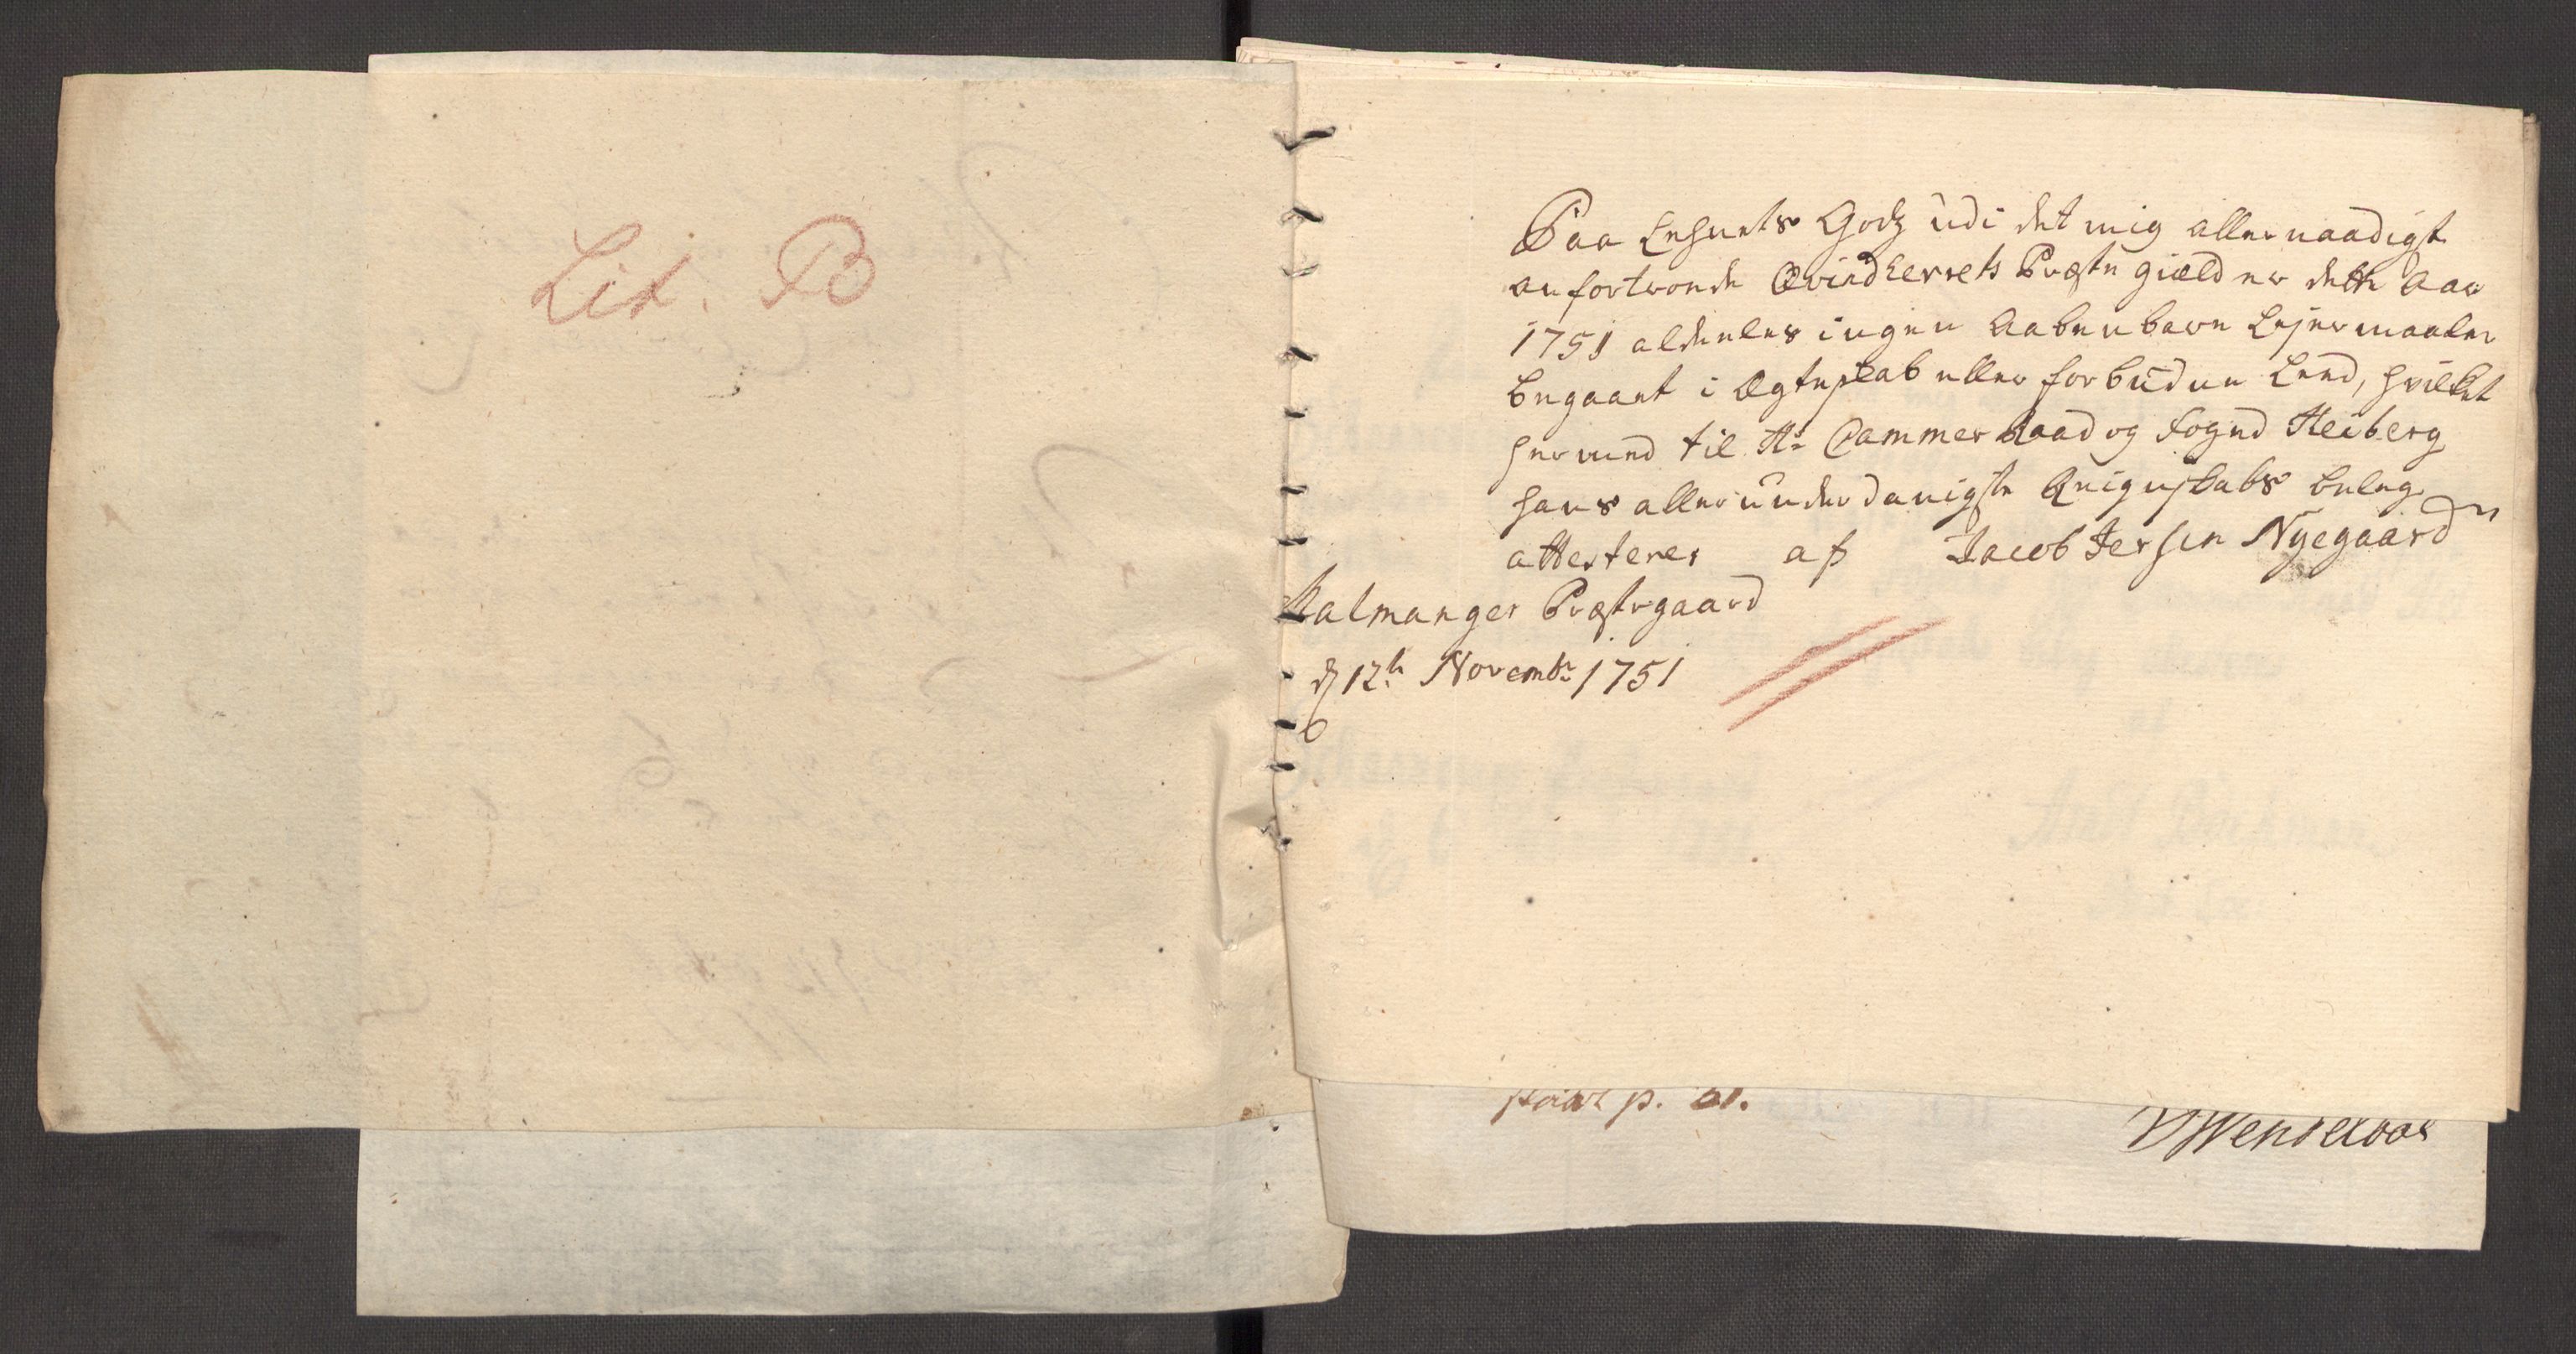 Lit. B
Paa Lehnets Godz udi det mig allernaadigst
anfortroede Qvindherrets Præste gield er dette Aar
1751 aldeeles ingen Aabenbare Lejermaaler
begaaet i Ægteskab eller forbuden Leed, hvilket
hermed til Hr Cammer Raad og Foged Heiberg
hans allerunderdanigste Reigenskabs belæg
attesteres af Jacob Jersin Nyegaard
Malmanger Præstegaard
d 12te Novembr 1751
p. 61.